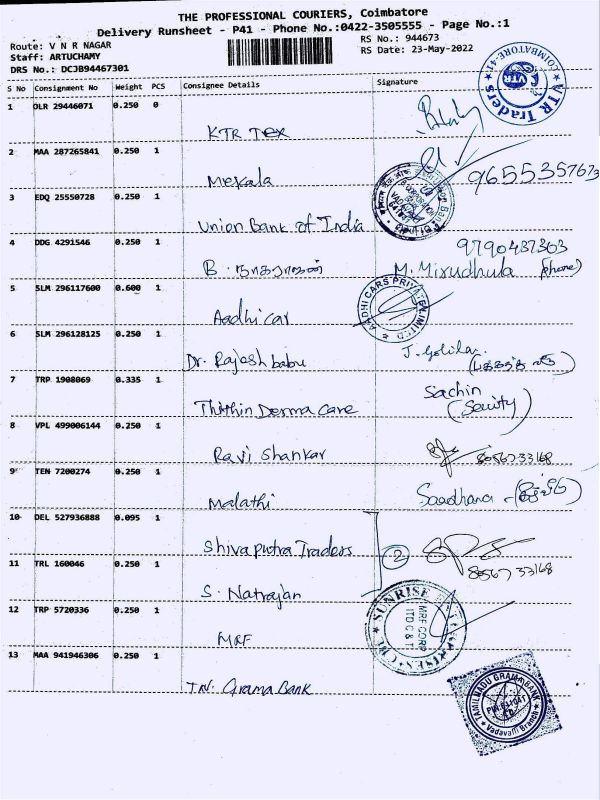 THE PROFESSIONAL COURIERS, Coimbatore
Delivery Runsheet - P41 - Phone No.:0422-3505555 - Page No.:1
Route: V N R NAGAR
RS No.: 944673
Staff: ARTUCHAMY
RS Date: 23-May-2022
DRS No.: DCJB94467301
S No Consignment No Weight PCS Consignee Details Signature
1 OLR 29446071 0.250 0
KTR Tex
VTR Traders
COIMBATORE-41
VTR
2 MAA 287265841 0.250 1
Mekala 9655357673
3 EDQ 25550728 0.250 1
Union Bank of India
4 DDG 4291546 0.250 1
9790437303
B. நாகராஜன் M. Mirudhula (phone)
5 SLM 296117600 0.600 1
Aadhi car
AADHI CARS PRIVATE LIMITED
6 SLM 296128125 0.250 1
Dr. Rajesh babu J.
7 TRP 1908069 0.335 1
Thithin Derma Care Sachin
8 VPL 499006144 0.250 1
Ravi Shankar 80567 33168
9 TEN 7200274 0.250 1
Malathi Saadhana
10 DEL 527936888 0.095 1
Shivaputra Traders 2
11 TRL 160046 0.250 1
80567 33168
S. Natrajan
12 TRP 5720336 0.250 1
MRF
SUNRISE
MRF CORP
ITD C & T
13 MAA 941946306 0.250 1
TN. Grama Bank
TAMILNADU GRAMA BANK
Vadavalli Branch